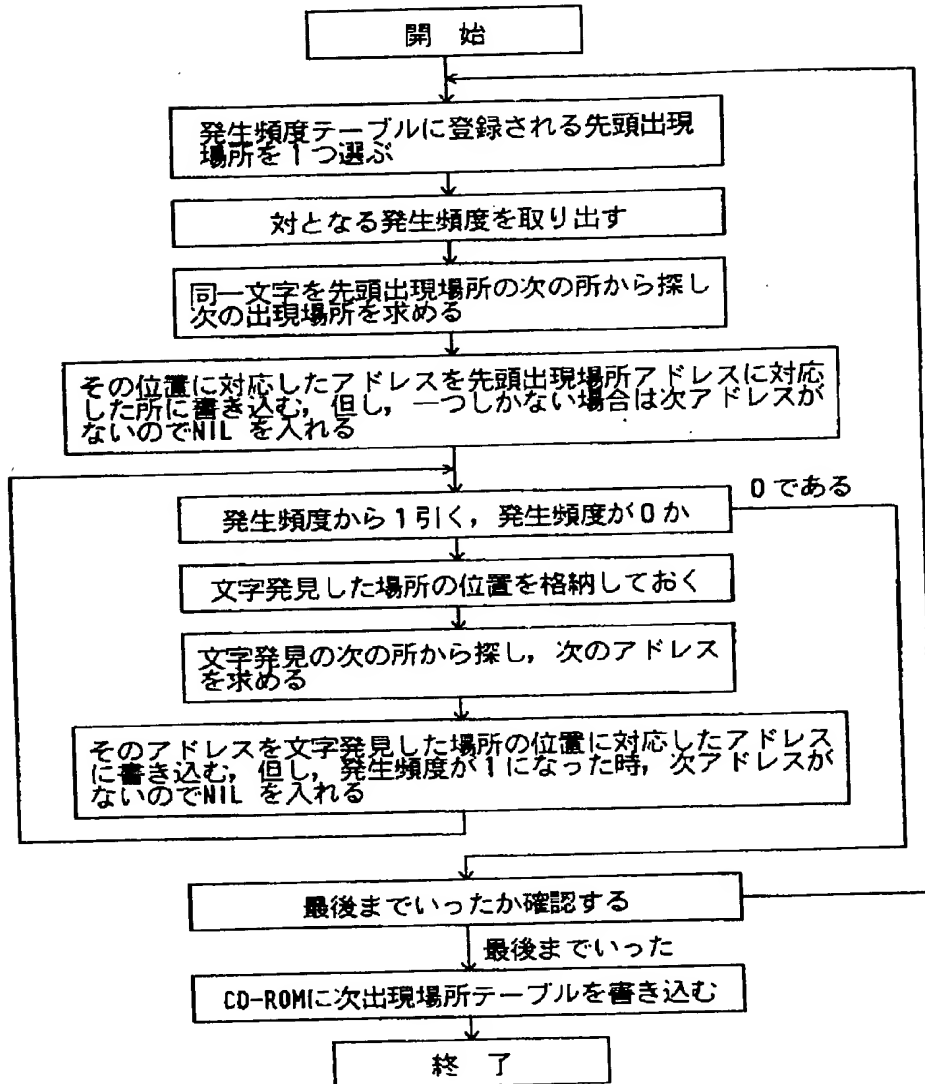 開 始
発生頻度テーブルに登録される先頭出現
場所を１つ選ぶ
対となる発生頻度を取り出す
同一文字を先頭出現場所の次の所から探し
次の出現場所を求める
その位置に対応したアドレスを先頭出現場所アドレスに対応
した所に書き込む，但し，一つしかない場合は次アドレスが
ないのでNIL を入れる
0である
発生頻度から１引く，発生頻度が０か
文字発見した場所の位置を格納しておく
文字発見の次の所から探し，次のアドレス
を求める
そのアドレスを文字発見した場所の位置に対応したアドレス
に書き込む，但し，発生頻度が１になった時，次アドレスが
ないのでNIL を入れる
最後までいったか確認する
最後までいった
CD-ROMに次出現場所テーブルを書き込む
終 了